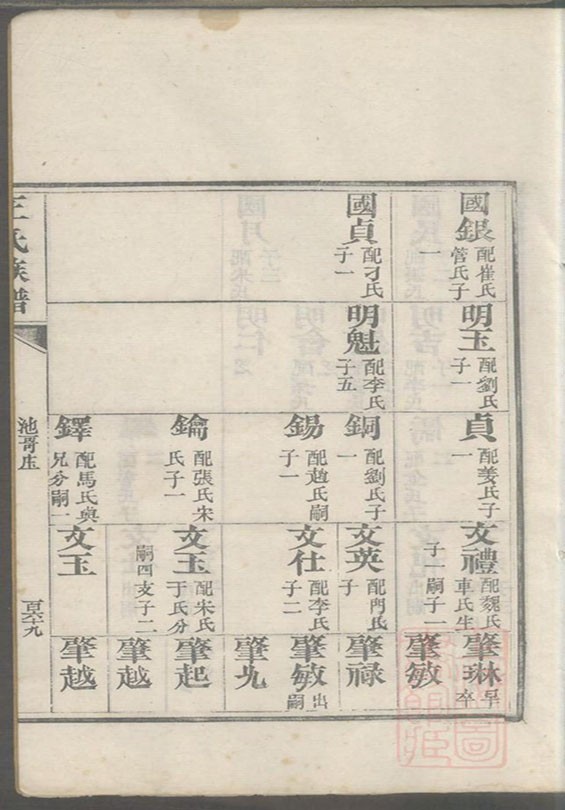 國銀 配崔氏管氏子一
國貞 配刁氏子一
明玉 配劉氏子一
明魁 配李氏子五
貞 配姜氏子一
銅 配劉氏子一
錫 配趙氏嗣子一
鑰 配張氏宋氏子一
鐸 配馬氏與兄分嗣一
文禮 配魏氏車氏生子一嗣子一
文英 配門氏子
文仕 配李氏子二
文玉 配朱氏于氏分嗣四支子二
文玉
肇琳 早卒
肇敏
肇祿
肇敏 出嗣
肇九
肇起
肇越
肇越
王氏族譜
池哥庄
百六十九